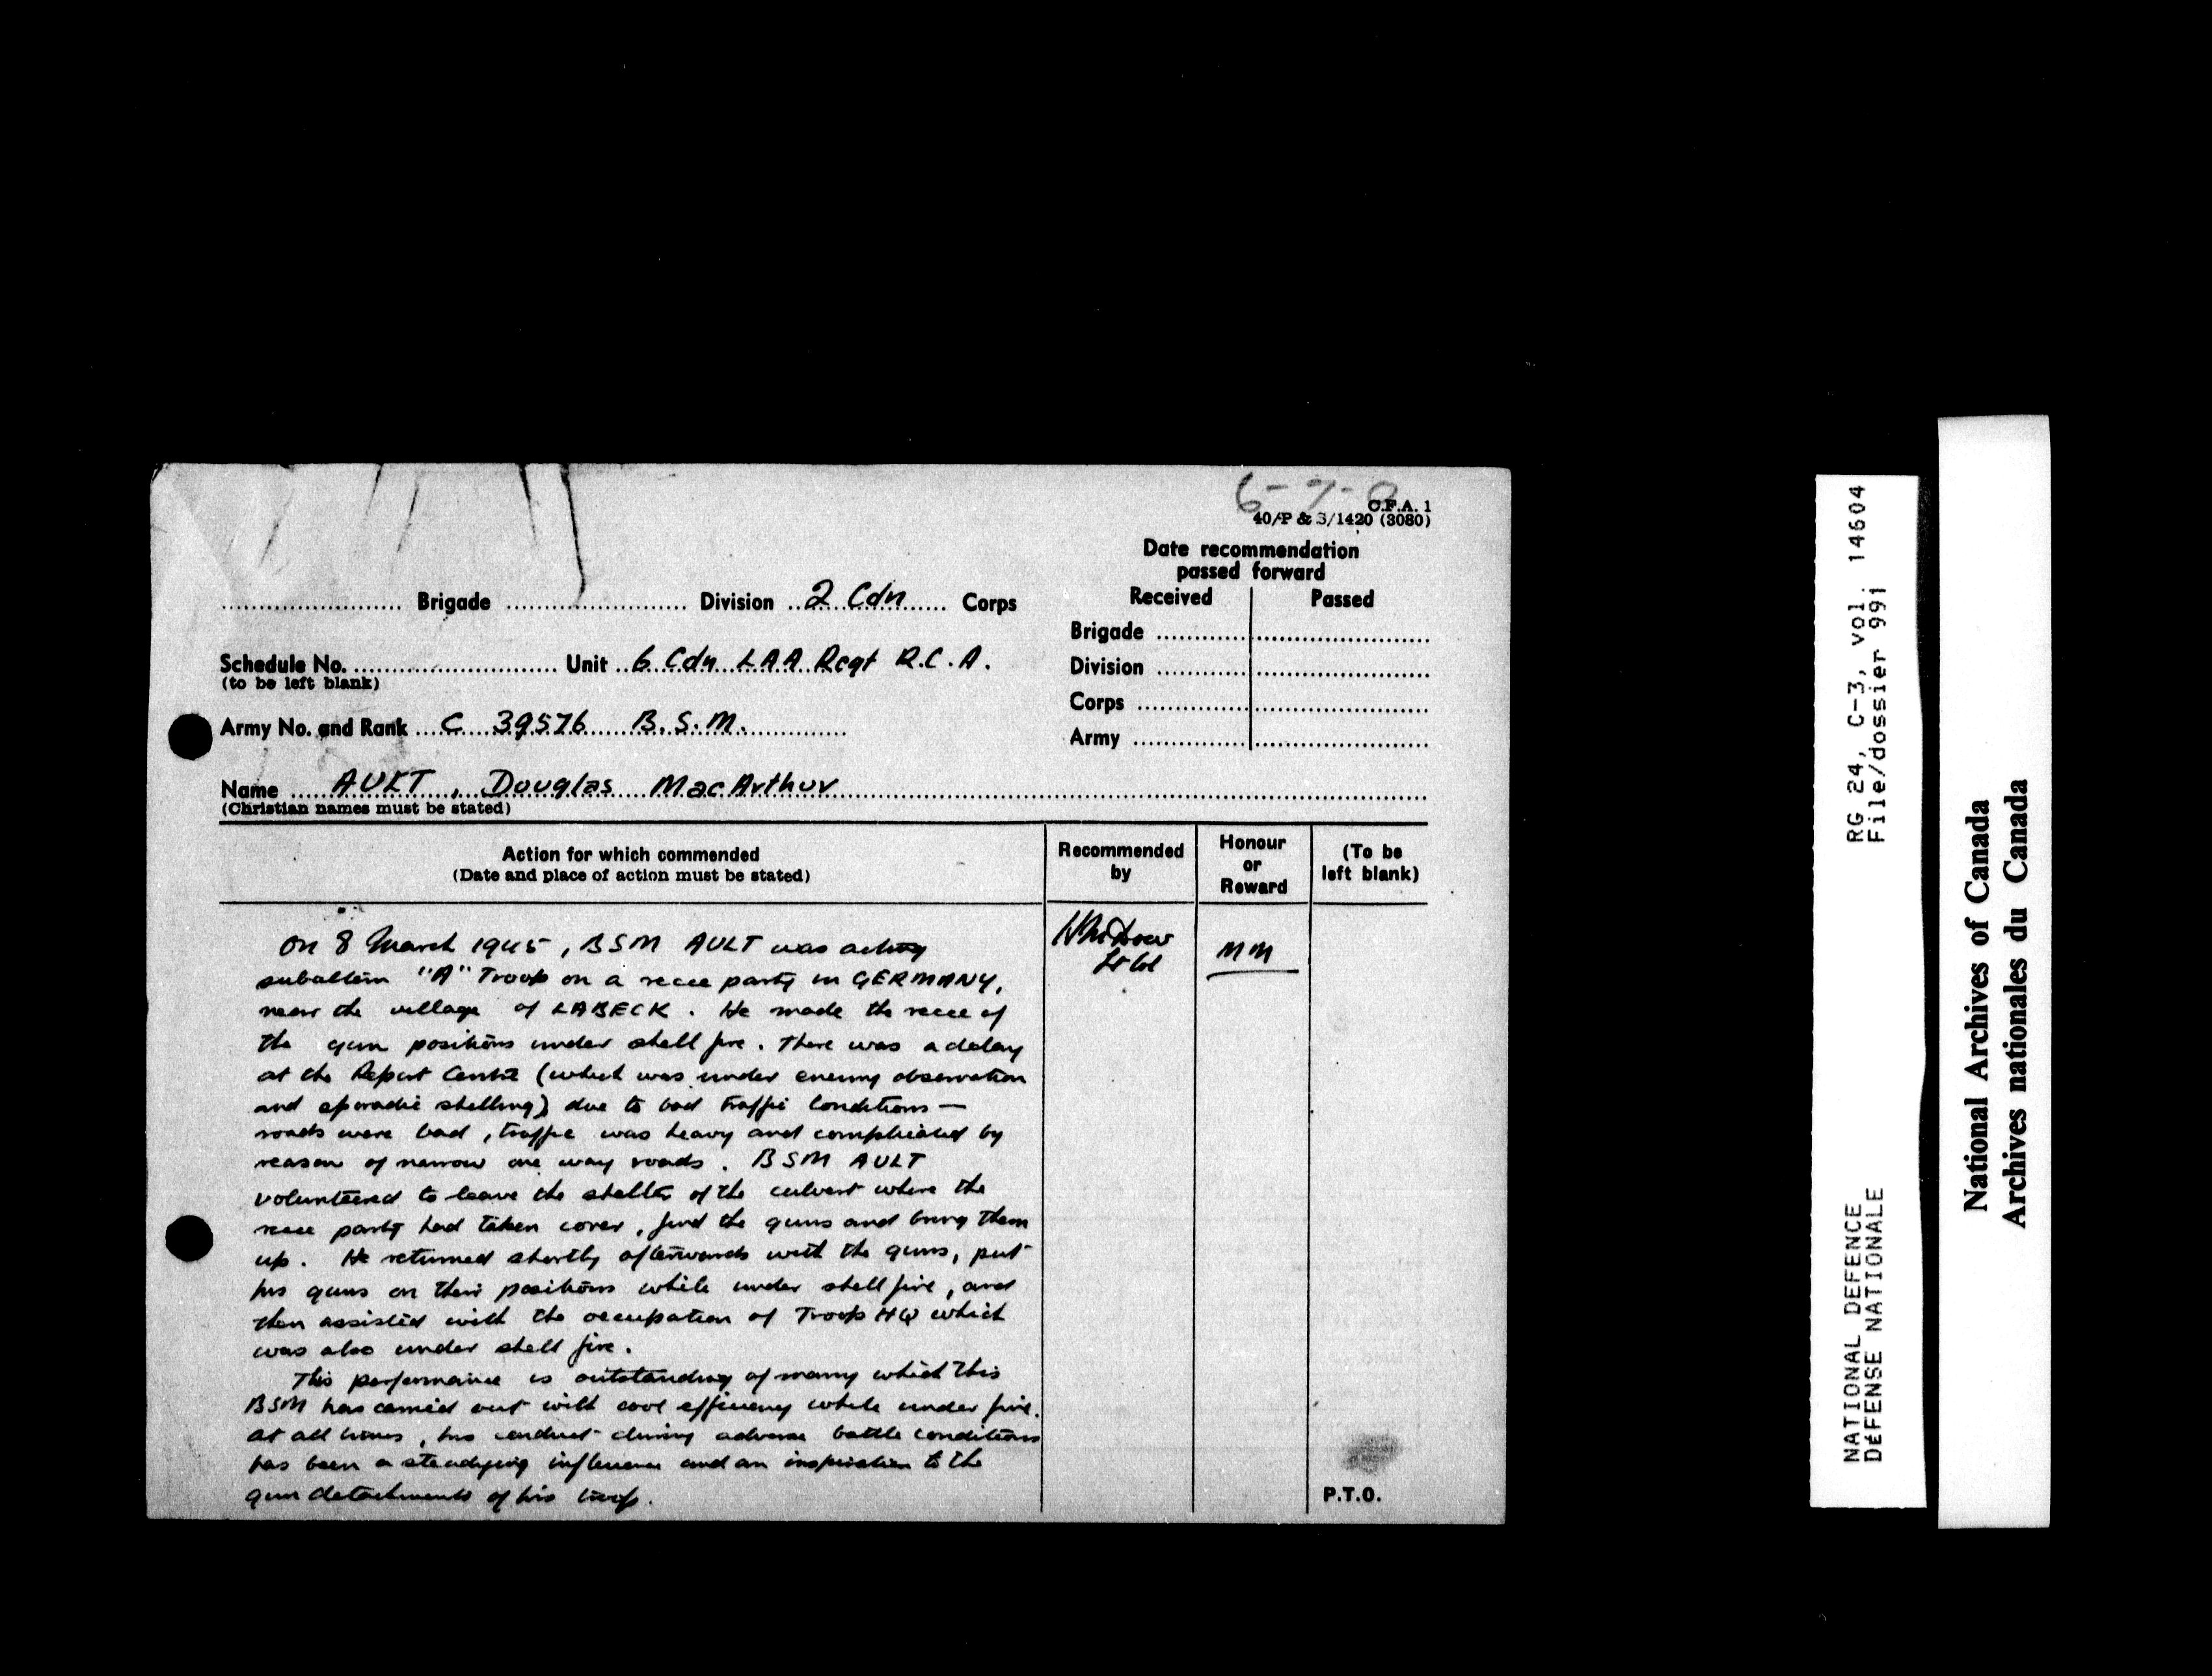 C.F.A. 1
40/P & S/1420 (3080)
Date recommendation
passed forward
Received Passed
Brigade
Division
Corps
Army
Brigade Division 2 Cdn Corps
Schedule No. Unit 6 Cdn LAA Regt R.C.A.
(to be left blank)
Army No. and Rank C 39576 B.S.M.
Name AULT, Douglas MacArthur
(Christian names must be stated)
Action for which commended
(Date and place of action must be stated)
Recommended
by
Honour
or
Reward
(To be
left blank)
On 8 March 1945, BSM AULT was acting
subaltern "A" Troop on a recce party in GERMANY,
near the village of LABECK. He made the recce of
the gun positions under shell fire. There was a delay
at the Report Centre (which was under enemy observation
and sporadic shelling) due to bad traffic conditions —
roads were bad, traffic was heavy and complicated by
reason of narrow one way roads. BSM AULT
volunteered to leave the shelter of the culvert where the
recce party had taken cover, find the guns and bring them
up. He returned shortly afterwards with the guns, put
his guns on their positions while under shell fire, and
then assisted with the occupation of Troop HQ which
was also under shell fire.
This performance is outstanding of many which this
BSM has carried out with cool efficiency while under fire.
At all times, his conduct during adverse battle conditions
has been a steadying influence and an inspiration to the
gun detachments of his troop.
Lt Col
MM
P.T.O.
RG 24, C-3, vol. 14604
File/dossier 991
NATIONAL DEFENCE
DÉFENSE NATIONALE
National Archives of Canada
Archives nationales du Canada